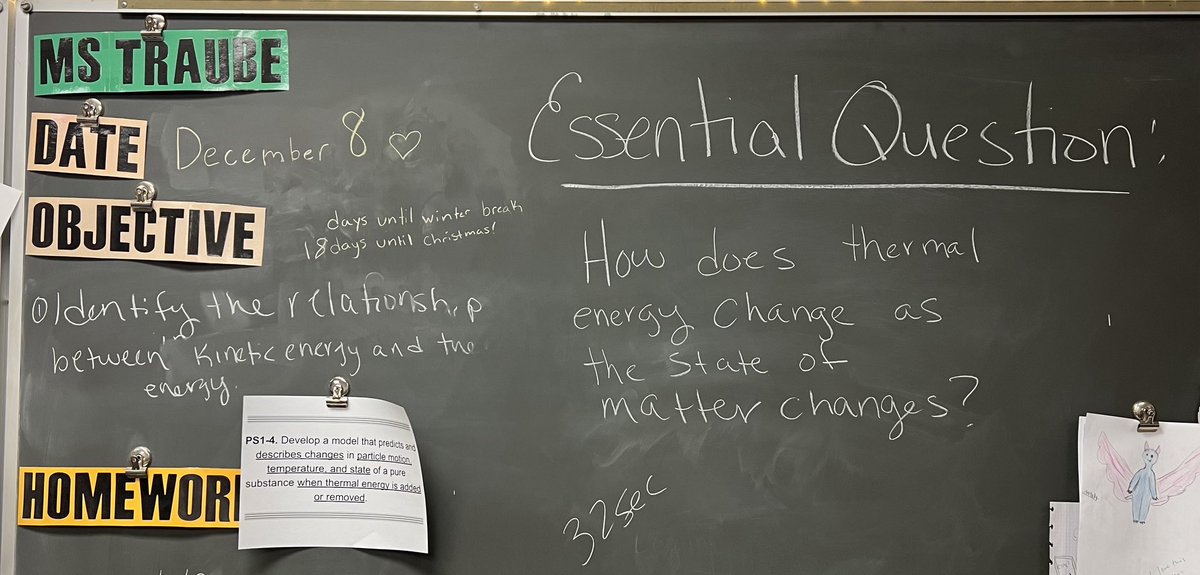 MS TRAUBE
DATE December 8 ♡
OBJECTIVE
days until winter break
18 days until christmas!
① Identify the relationship
between in Kinetic energy and the
energy.
PS1-4. Develop a model that predicts and
describes changes in particle motion,
temperature, and state of a pure
substance when thermal energy is added
or removed.
HOMEWOR
Essential Question:
How does thermal
energy change as
the state of
matter changes?
32sec